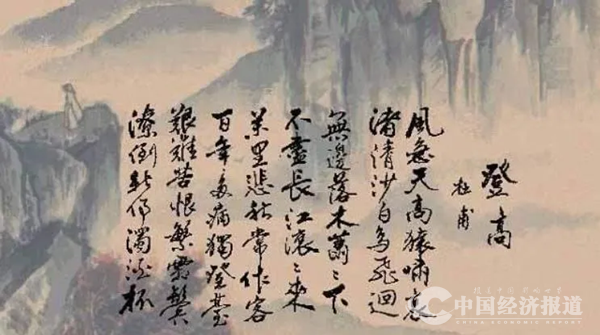 登高
杜甫
風急天高猿嘯哀
渚清沙白鳥飛迴
無邊落木蕭〻下
不盡長江滾〻來
萬里悲秋常作客
百年多病獨登臺
艱難苦恨繁霜鬢
潦倒新停濁酒杯
中国经济报道